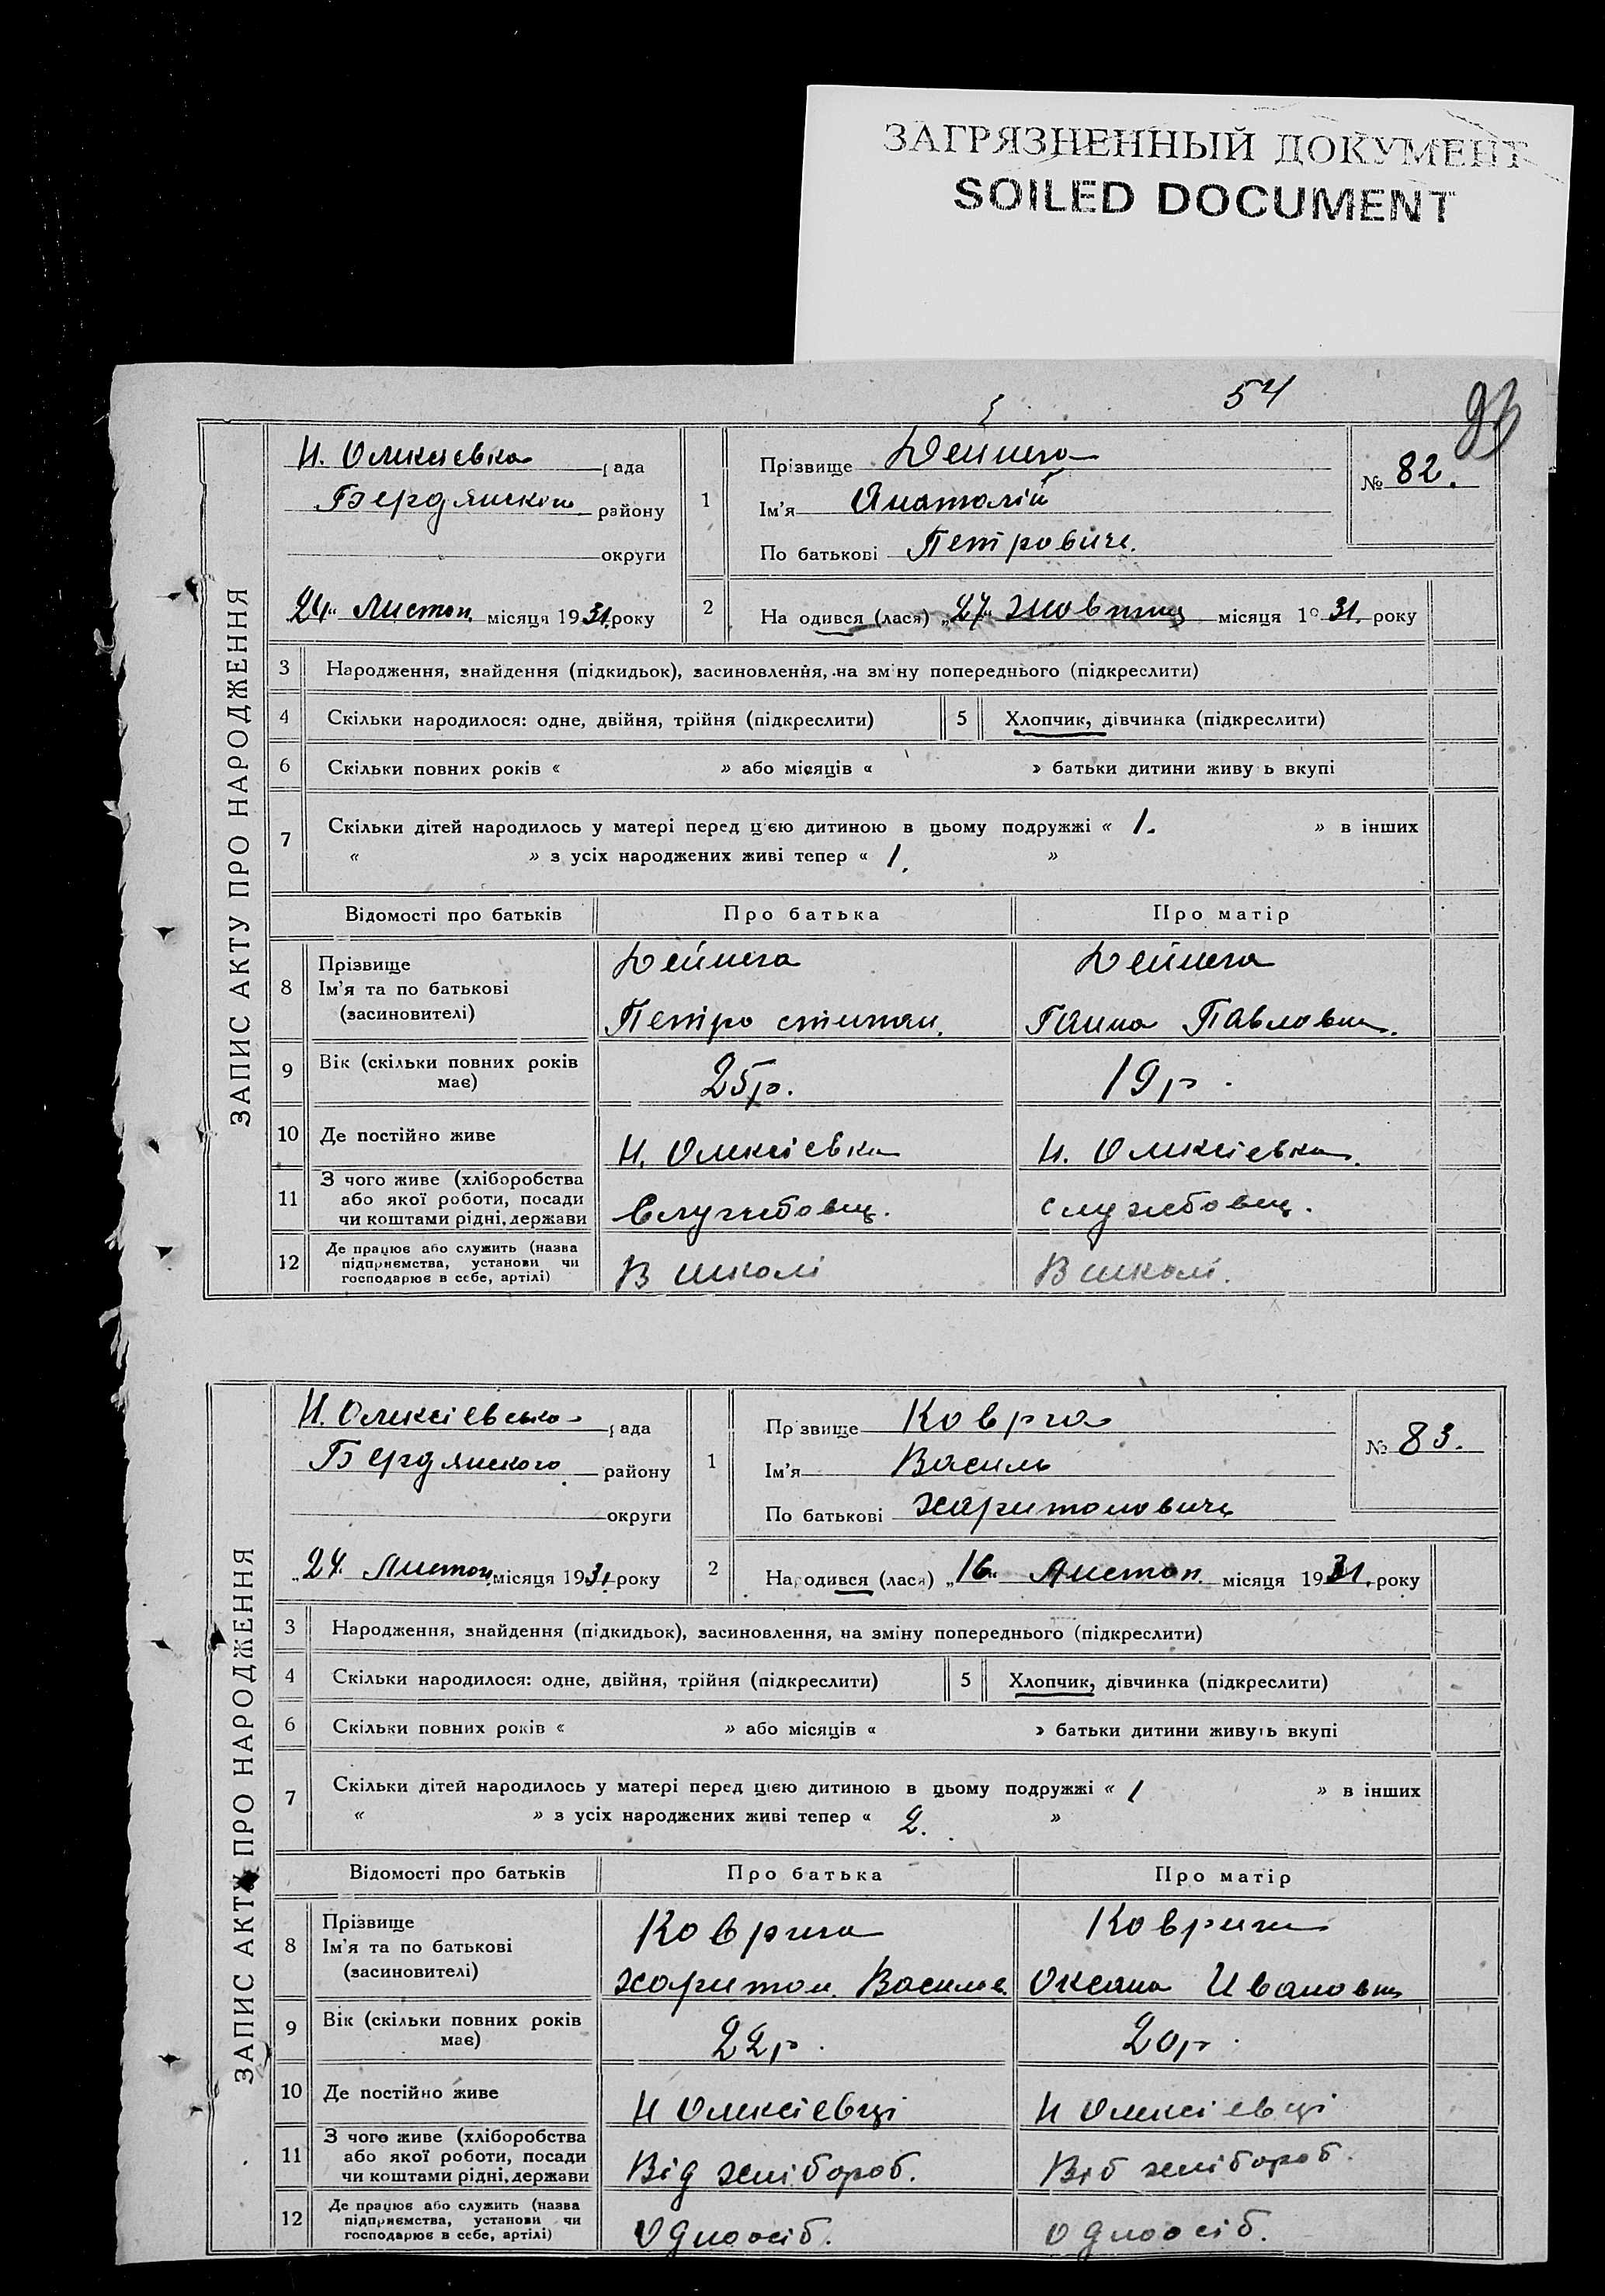 ЗАГРЯЗНЕННЫЙ ДОКУМЕНТ
SOILED DOCUMENT
54
93
ЗАПИС АКТУ ПРО НАРОДЖЕННЯ
Н. Олексієвка рада
Бердянськ району
округи
24 Листоп. місяця 1931 року
1
Прізвище Дейнега
Ім'я Анатолій
По батькові Петрович
№ 82.
2
Народився (лася) „27" Жовтня місяця 1931. року
3 Народження, знайдення (підкидьок), засиновлення, на зміну попереднього (підкреслити)
4 Скільки народилося: одне, двійня, трійня (підкреслити)
5 Хлопчик, дівчинка (підкреслити)
6 Скільки повних років « » або місяців « » батьки дитини живуть вкупі
7 Скільки дітей народилось у матері перед цією дитиною в цьому подружжі « 1. » в інших
« » з усіх народжених живі тепер « 1. »
Відомості про батьків Про батька Про матір
8 Прізвище
Ім'я та по батькові
(засиновителі)
Дейнега
Петро степан.
Дейнега
Ганна Павловна.
9 Вік (скільки повних років має) 25р. 19р.
10 Де постійно живе Н. Олексієвка Н. Олексієвка.
11 З чого живе (хліборобства
або якої роботи, посади
чи коштами рідні, держави
Службовец. службовец.
12 Де працює або служить (назва
підприємства, установи чи
господарює в себе, артілі)
В школі В школі.
ЗАПИС АКТУ ПРО НАРОДЖЕННЯ
Н. Олексієвська рада
Бердянского району
округи
„24. Листоп. місяця 1931. року
1
Прізвище Коврга
Ім'я Василь
По батькові Харитонович
№ 83.
2
Народився (лася) „16" Листоп. місяця 1931. року
3 Народження, знайдення (підкидьок), засиновлення, на зміну попереднього (підкреслити)
4 Скільки народилося: одне, двійня, трійня (підкреслити)
5 Хлопчик, дівчинка (підкреслити)
6 Скільки повних років « » або місяців « » батьки дитини живуть вкупі
7 Скільки дітей народилось у матері перед цією дитиною в цьому подружжі « 1 » в інших
« » з усіх народжених живі тепер « 2. »
Відомості про батьків Про батька Про матір
8 Прізвище
Ім'я та по батькові
(засиновителі)
Коврига
Харитон. Василь.
Коврига
Оксана Ивановна
9 Вік (скільки повних років має) 22р. 20р.
10 Де постійно живе Н Олексієвці Н Олексієвці
11 З чого живе (хліборобства
або якої роботи, посади
чи коштами рідні, держави
Від хлібороб. Віб хлібороб.
12 Де працює або служить (назва
підприємства, установи чи
господарює в себе, артілі)
Одноосіб. одноосіб.